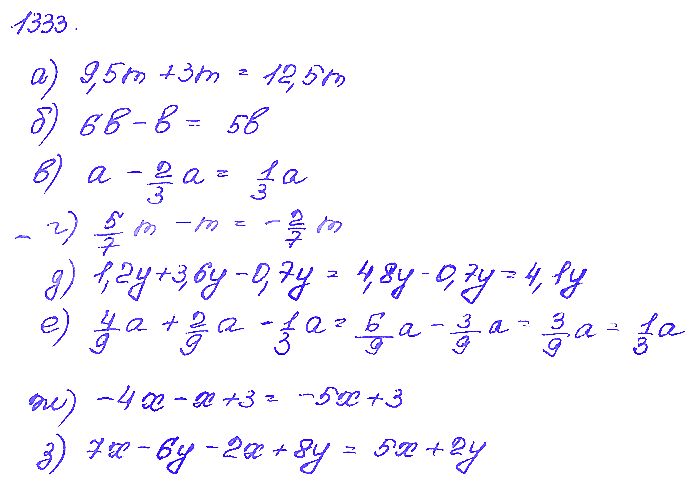 1333.
а) 9,5m + 3m = 12,5m
б) 6b - b = 5b
в) a - 2/3 a = 1/3 a
г) 5/7 m - m = - 2/7 m
д) 1,2y + 3,6y - 0,7y = 4,8y - 0,7y = 4,1y
е) 4/9 a + 2/9 a - 1/3 a = 6/9 a - 3/9 a = 3/9 a = 1/3 a
ж) -4x - x + 3 = -5x + 3
з) 7x - 6y - 2x + 8y = 5x + 2y